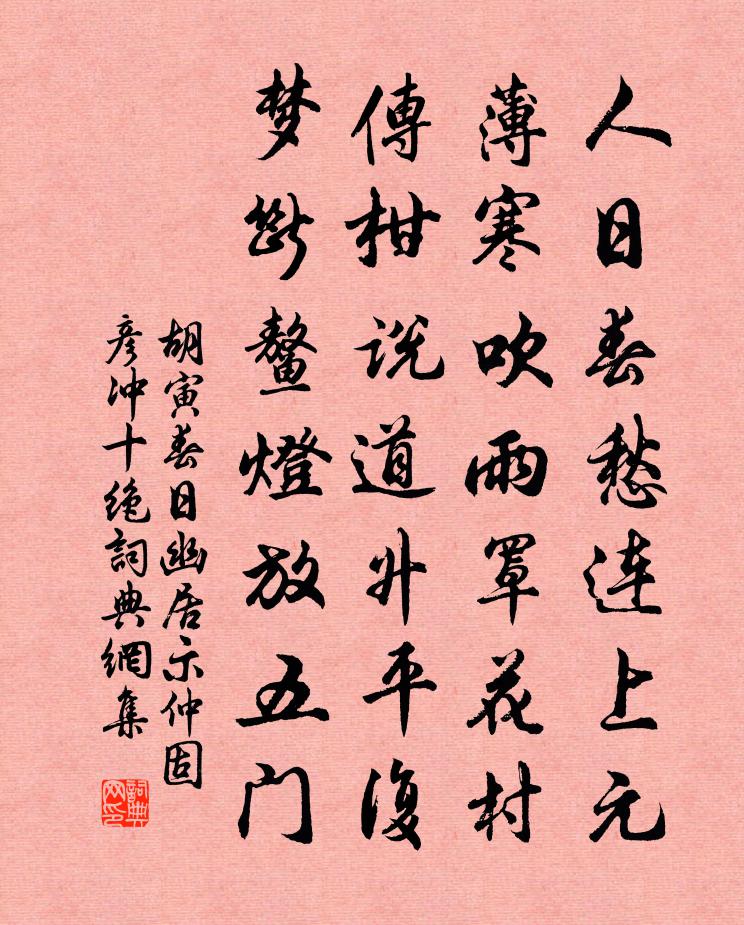 人日春愁連上元
薄寒吹雨罩花村
傳柑說道升平復
梦斷鳌燈放五门
胡寅春日幽居示仲固
彦冲十绝詞典網集
詞典网印